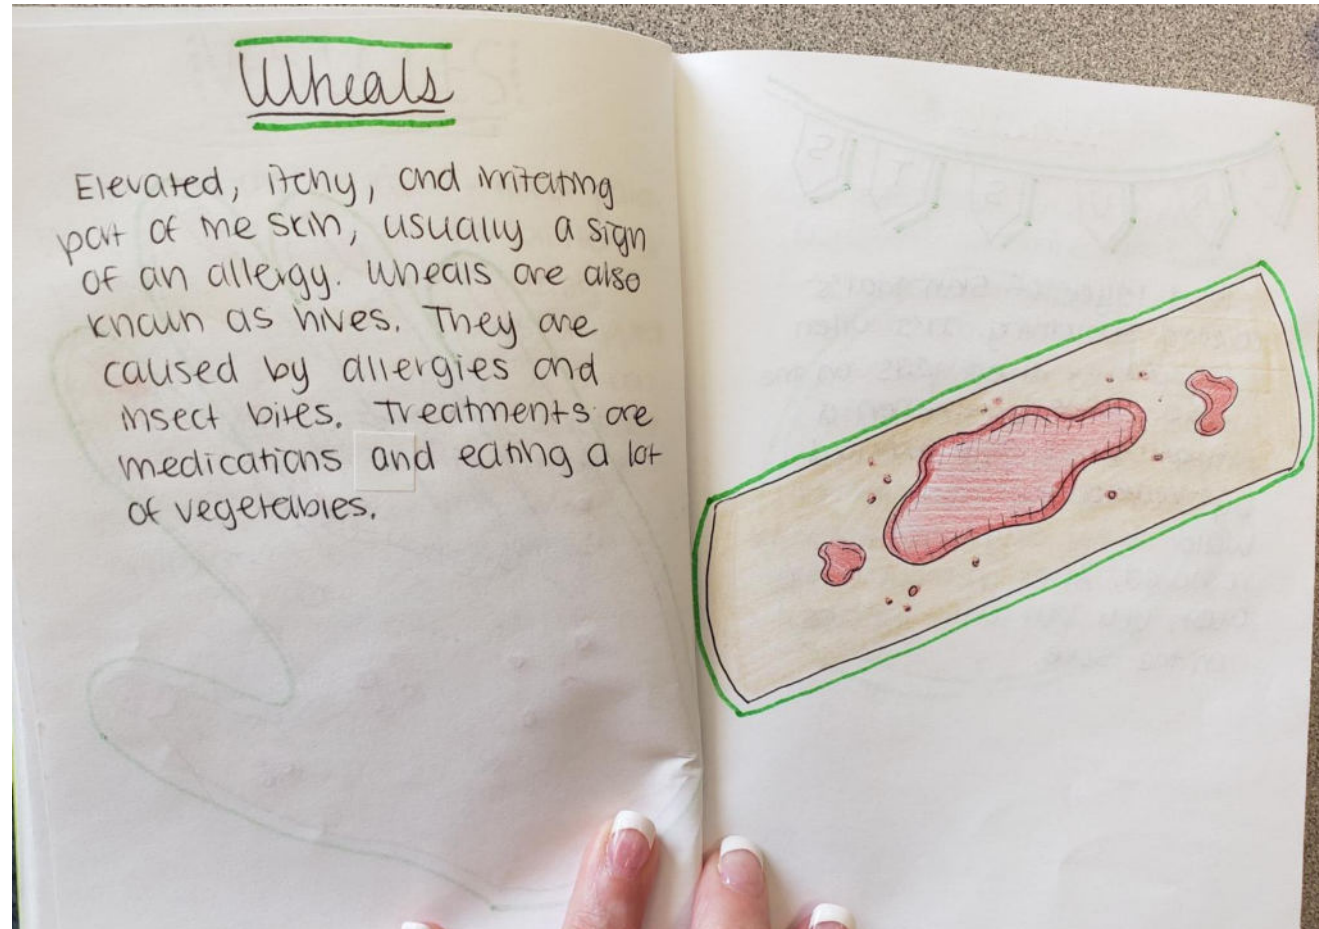 Wheals
Elevated, itchy, and irritating
part of the skin, usually a sign
of an allergy. Wheals are also
known as hives. They are
caused by allergies and
insect bites. Treatments are
medications and eating a lot
of vegetables.